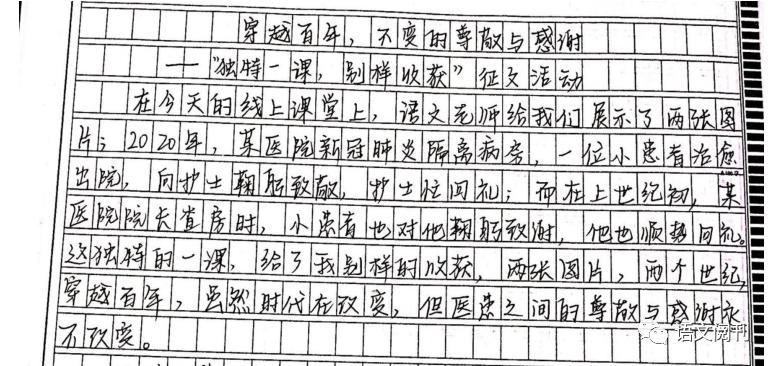 穿越百年，不变的尊敬与感谢
——“独特一课，别样收获”征文活动
在今天的线上课堂上，语文老师给我们展示了两张图
片；2020年，某医院新冠肺炎隔离病房，一位小患者治愈
出院，向护士鞠躬致敬，护士位回礼；而在上世纪初，某
医院院长查房时，小患者也对他鞠躬致谢，他也顺势回礼。
这独特的一课，给了我别样的收获，两张图片，两个世纪，
穿越百年，虽然时代在改变，但医患之间的尊敬与感谢永
不改变。
语文阅刊